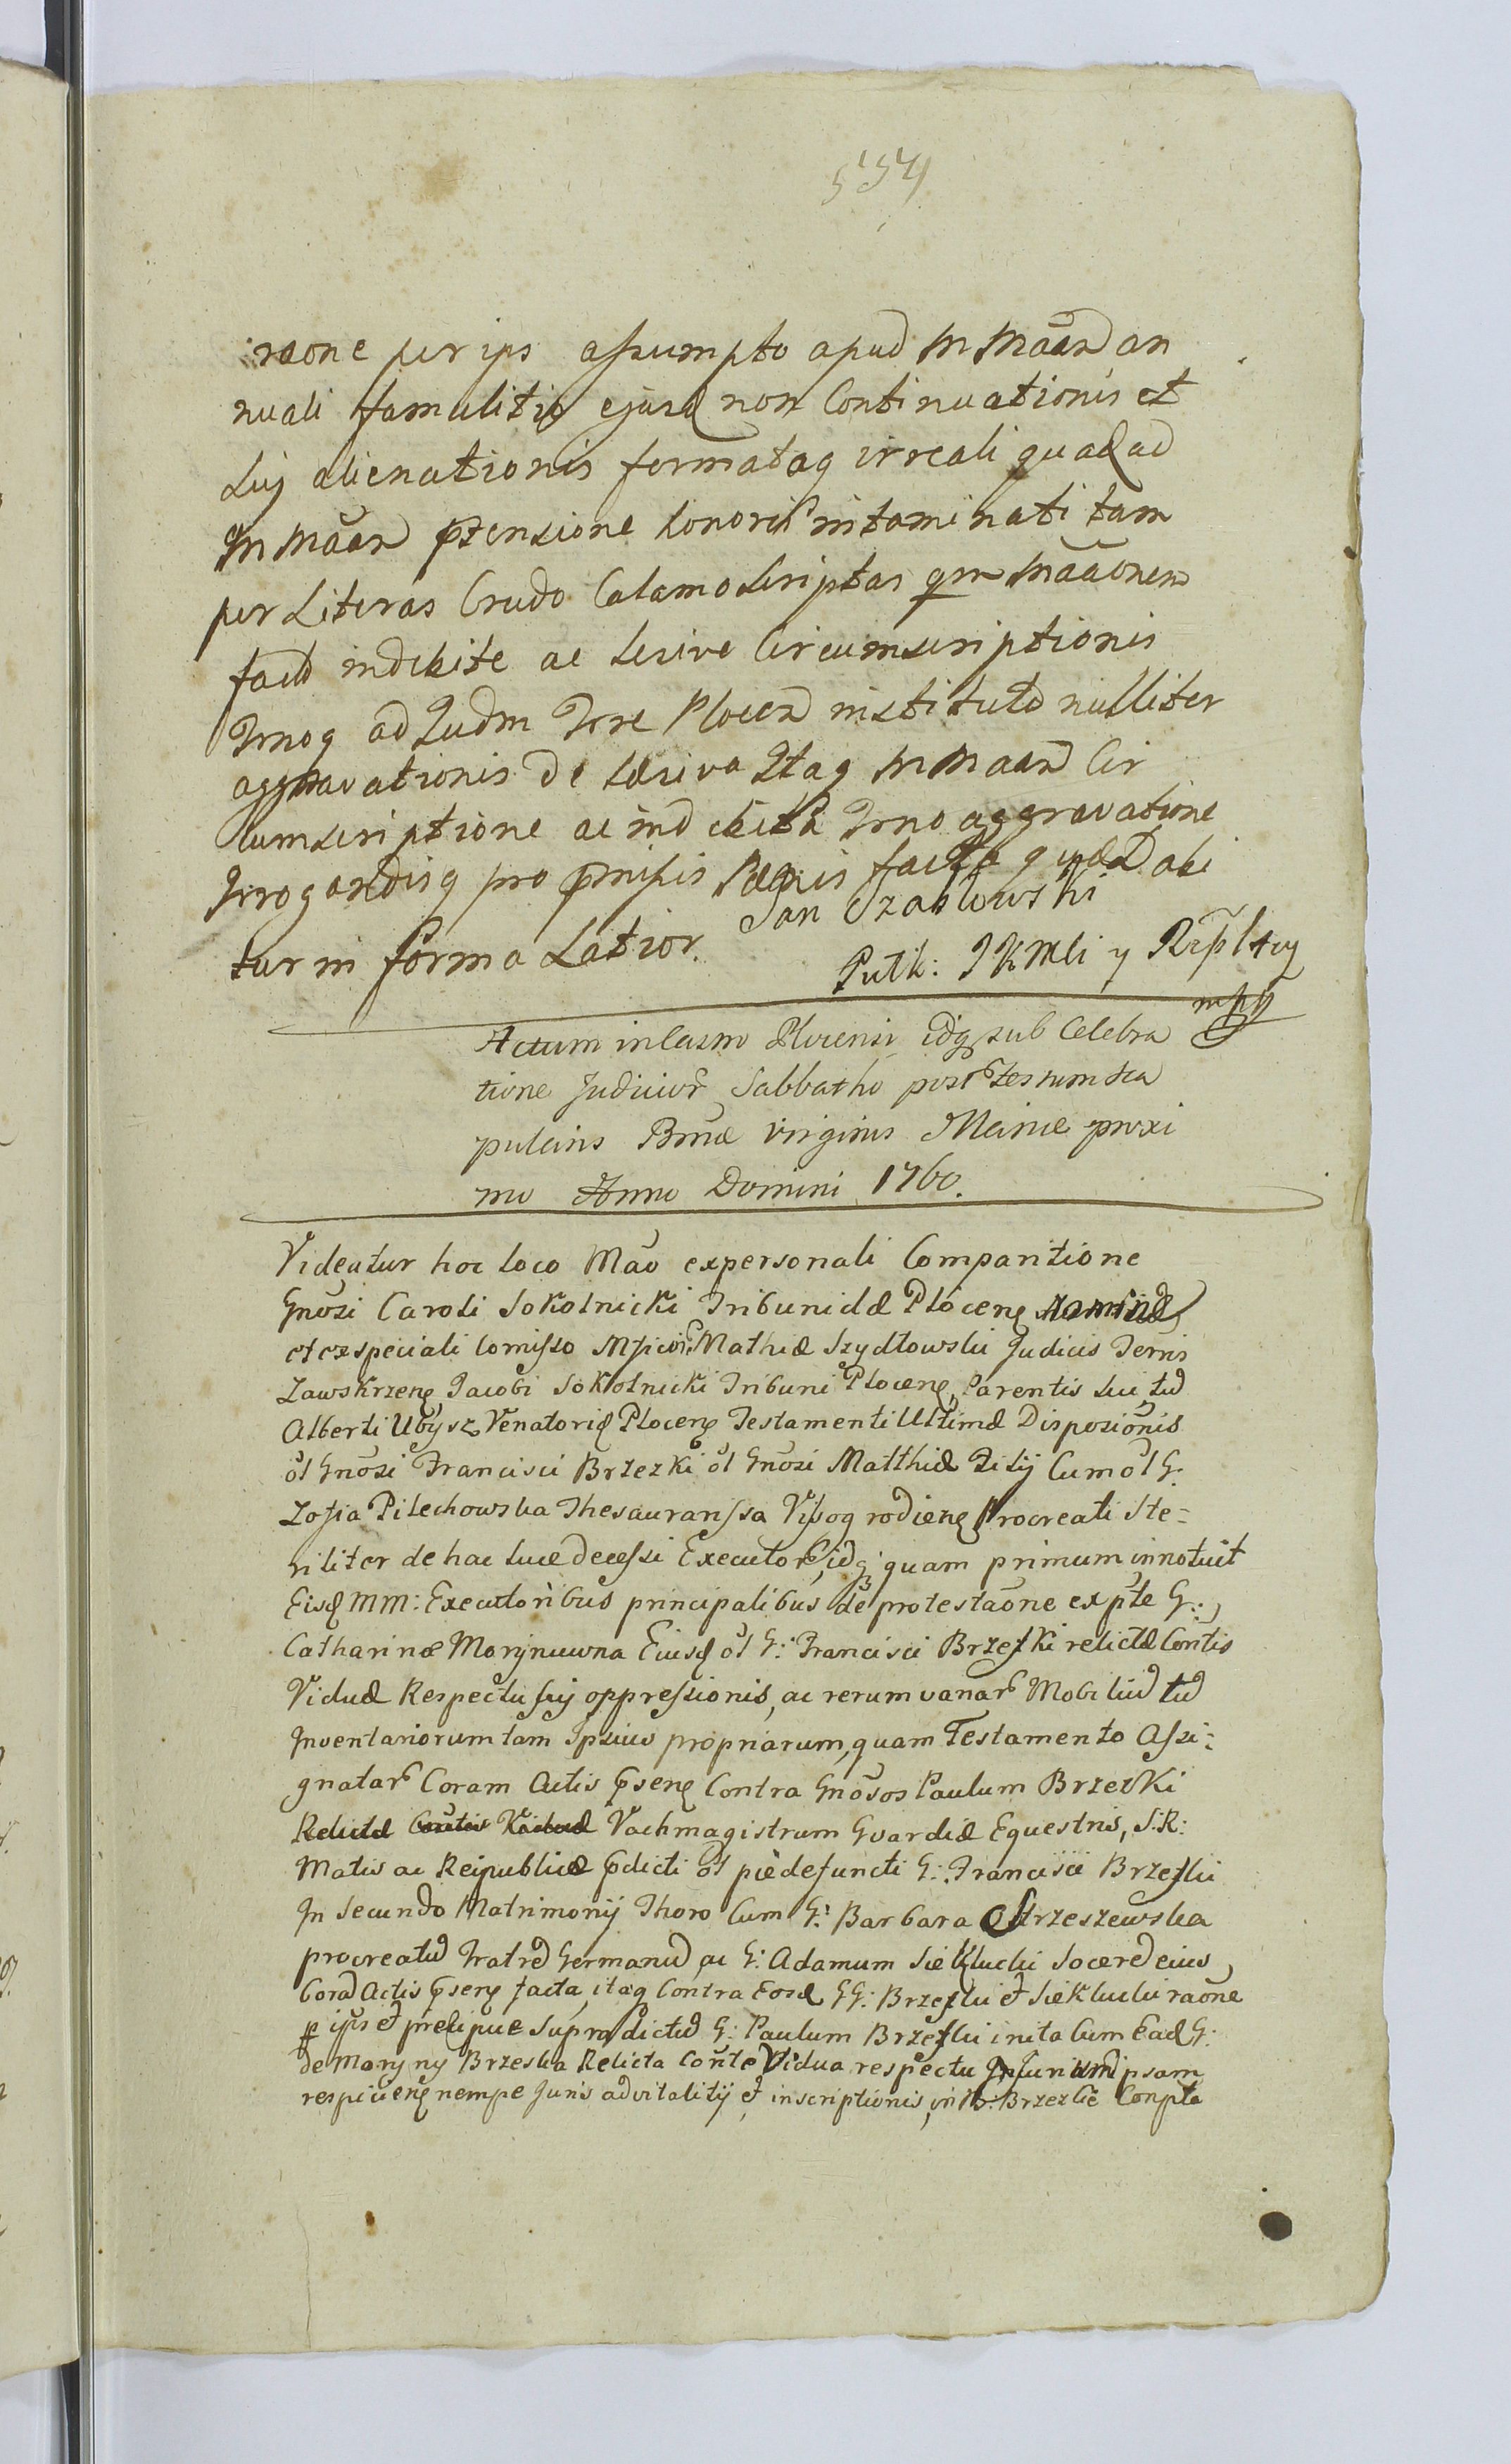 554
raone per ips assumpto apud M Mãan an
nuali famulitio ejusd non Continuationis et
sui alienationis formataq irreali quad ad
M Mãan ptensione honoris intaminati tam
per Literas Crudo Calamo scriptas qm Mããonem
fact indebite ac lesive Circumscriptionis
Trnoq ad Judm Trre Plocen institutd nulliter
aggravationis de lesiva Itaq M Maan Cir
cumscriptione ac indebita Trno aggravatione
Irrogandisq pro pmissis Pænis facta quæ Dabi
tur in forma Latior.
Jan Szabłowski
Putk: JKMci y Rzpltey
mpp
Actum in Castro Plocensi idq sub Celebra
tione Judicior Sabbatho post Festum Sca
pularis Bmæ Virginis Mariæ proxi
mo Anno Domini 1760.
Videatur hoc loco Mão ex personali Comparitione
Gnõsi Caroli Sokolnicki Tribunidæ Plocen
et ex speciali Comisso Mficor Mathiæ Szydłowski Judicis Terris
Zawskrzen, Jacobi Sokolnicki Tribuni Plocen, Parentis sui tũd
Alberti Ubysz Venatoris Plocen Testamenti Ultimæ Disposiõnis
ol Gnõsi Francisci Brzezki ol Gnõsi Matthiæ Filij Cum ol G.
Zofia Pilechowska Thesauraríssa Wyszogrodien Procreati Ste-
riliter de hac luce decessi Executor, idq quam primum innotuit
Eisd MM: Executoribus principalibus de protestaõne ex pte G:,
Catharinæ Moryniuwna Eiusd ol G: Francisci Brzeski relictæ Contis
Viduæ Respectu sui oppressionis, ac rerum variar Mobiliũd tũd
Inventariorum tam Ipsius propriarum, quam Testamento Assi-
gnatar Coram Actis psen Contra Gnõsos Paulum Brzezki
Relictæ Contis Viduæ Vachmagistrum Gvardiæ Equestris, S.R:
Matis ac Reipublicæ pdicti ol piè defuncti G: Francisci Brzeski
In Secundo Matrimonij Thoro Cum G: Barbara Ostrzeszewska
procreatũd Fratrẽd Germanũd, ac G: Adamum Siekłucki Socerẽd eius,
Corad Actis psen facta, itaq Contra Eosd GG: Brzeski et Siekłucki raõne
p ips et precipue Supradictũd G: Paulum Brzeski inita Cum Ead G:
de Moryny Brzeska Relicta Conte Vidua respectu Jurium ipsam
respicien nempe Juris advitalitij et inscriptionis, in Br: Brzezkie Conpta